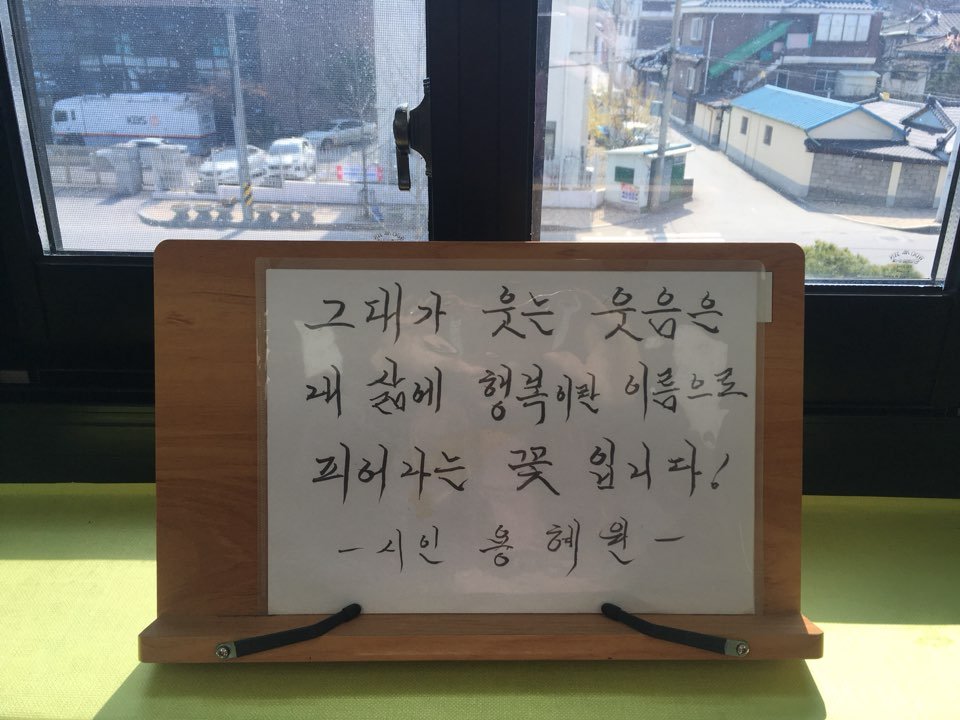 그대가 웃는 웃음은
내 삶에 행복이란 이름으로
피어나는 꽃 입니다!
- 시인 용혜원 -
KBS